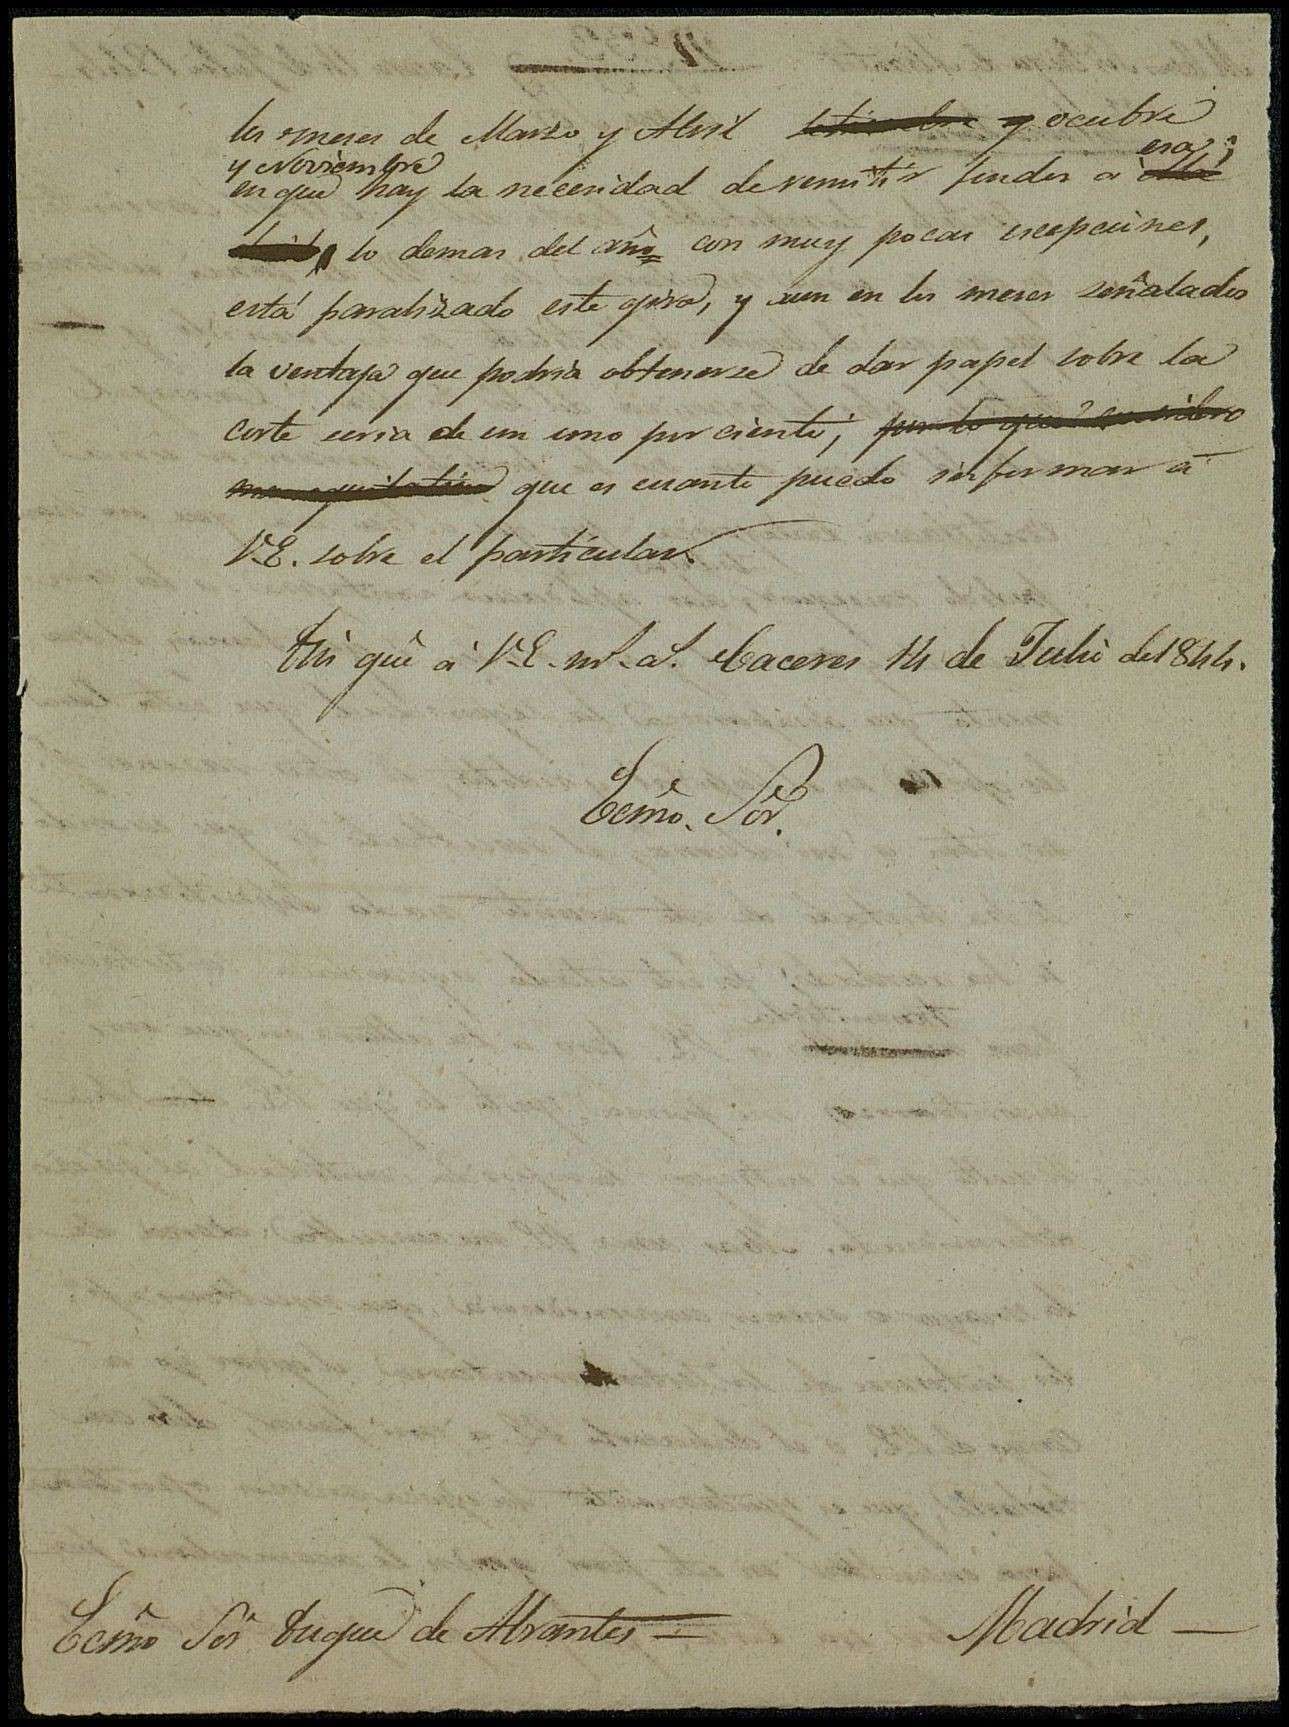 los meses de Marzo y Abril setiembre y ocubre
y Noviembre
en que hay la necesidad de remitir fondos a esa;
lo demas del año con muy pocas escepciones,
está paralizado este giro, y aun en los meses señalados
la ventaja que podria obtenerse de dar papel sobre la
corte seria de un uno por ciento; por lo que considero
mas equitativo que es cuanto puedo informar á
V.E. sobre el particular.
Dios gûe á V.E. m.s a.s Caceres 14 de Julio de 1844.
Ecmo. Sor.
Ecmo Sor Duque de Abrantes —
Madrid —